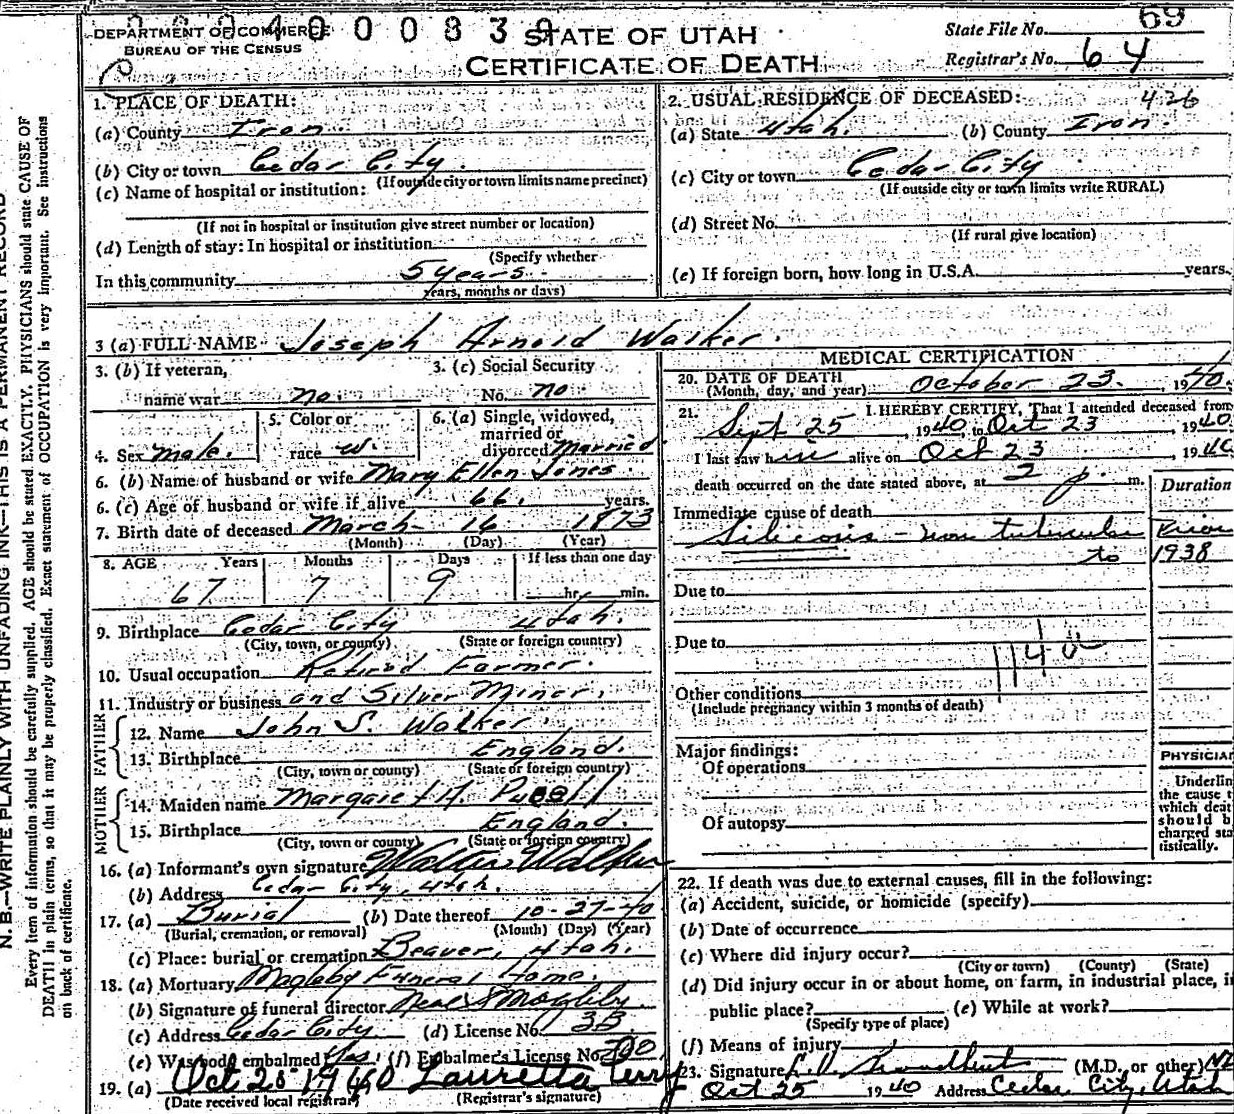 69
DEPARTMENT OF COMMERCE
BUREAU OF THE CENSUS
STATE OF UTAH
CERTIFICATE OF DEATH
State File No.
Registrar's No. 64
1. PLACE OF DEATH:
(a) County Iron
(b) City or town Cedar City.
(If outside city or town limits name precinct)
(c) Name of hospital or institution:
(If not in hospital or institution give street number or location)
(d) Length of stay: In hospital or institution
(Specify whether
In this community 5 years
years, months or days)
2. USUAL RESIDENCE OF DECEASED: 426
(a) State Utah. (b) County Iron.
(c) City or town Cedar City
(If outside city or town limits write RURAL)
(d) Street No.
(If rural give location)
(e) If foreign born, how long in U.S.A. years.
3 (a) FULL NAME Joseph Arnold Walker.
3. (b) If veteran,
name war no.
3. (c) Social Security
No. no
4. Sex male.
5. Color or
race w.
6. (a) Single, widowed,
married or
divorced Married
6. (b) Name of husband or wife Mary Ellen Jones
6. (c) Age of husband or wife if alive 66. years.
7. Birth date of deceased March 14 1873
(Month) (Day) (Year)
8. AGE Years Months Days If less than one day
67 7 9 hr. min.
9. Birthplace Cedar City Utah.
(City, town, or county) (State or foreign country)
10. Usual occupation Retired Farmer.
11. Industry or business and Silver Miner.
FATHER
12. Name John S. Walker
13. Birthplace England.
(City, town or county) (State or foreign country)
MOTHER
14. Maiden name Margaret A.
15. Birthplace England.
(City, town or county) (State or foreign country)
16. (a) Informant's own signature Walker
(b) Address Cedar City, Utah.
17. (a) Burial (b) Date thereof 10-27-40
(Burial, cremation, or removal) (Month) (Day) (Year)
(c) Place: burial or cremation Beaver, Utah.
18. (a) Mortuary Magleby Funeral Home.
(b) Signature of funeral director Neal S Magleby
(c) Address Cedar City (d) License No. 33
(e) Was body embalmed Yes. (f) Embalmer's License No. 200
19. (a) Oct 26 1940 Lauretta Perry
(Date received local registrar) (Registrar's signature)
MEDICAL CERTIFICATION
20. DATE OF DEATH
(Month, day, and year) October 23. , 1940.
21. I HEREBY CERTIFY, That I attended deceased from
Sept 25 , 1940, to Oct 23 , 1940.
I last saw him alive on Oct 23 , 1940
death occurred on the date stated above, at 2 p. m.
Duration
Immediate cause of death
Silicosis - non tubercular Prior
to 1938
Due to
Due to
Other conditions
(Include pregnancy within 3 months of death)
Major findings:
Of operations
Of autopsy
PHYSICIAN
Underline
the cause t
which deat
should b
charged sta
tistically.
22. If death was due to external causes, fill in the following:
(a) Accident, suicide, or homicide (specify)
(b) Date of occurrence
(c) Where did injury occur?
(City or town) (County) (State)
(d) Did injury occur in or about home, on farm, in industrial place, i
public place? (e) While at work?
(Specify type of place)
(f) Means of injury
23. Signature (M.D. or other)
Oct 25 1940 Address Cedar City, Utah
N. B.—WRITE PLAINLY WITH UNFADING INK—THIS IS A PERMANENT RECORD
Every item of information should be carefully supplied. AGE should be stated EXACTLY. PHYSICIANS should state CAUSE OF
DEATH in plain terms, so that it may be properly classified. Exact statement of OCCUPATION is very important. See instructions
on back of certificate.